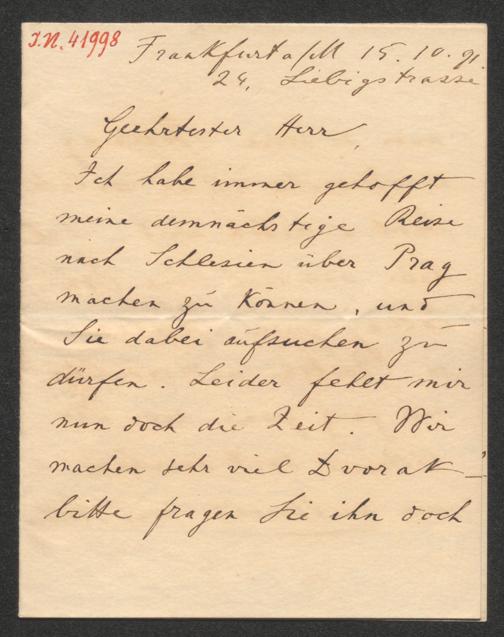 I.N. 41998
Frankfurt a/M 15. 10. 91.
24, Liebigstrasse
Geehrtester Herr,
Ich habe immer gehofft
meine demnächstige Reise
nach Schlesien über Prag
machen zu können, und
Sie dabei aufsuchen zu
dürfen. Leider fehlt mir
nun doch die Zeit. Wir
machen sehr viel Dvorak –
bitte fragen Sie ihn doch